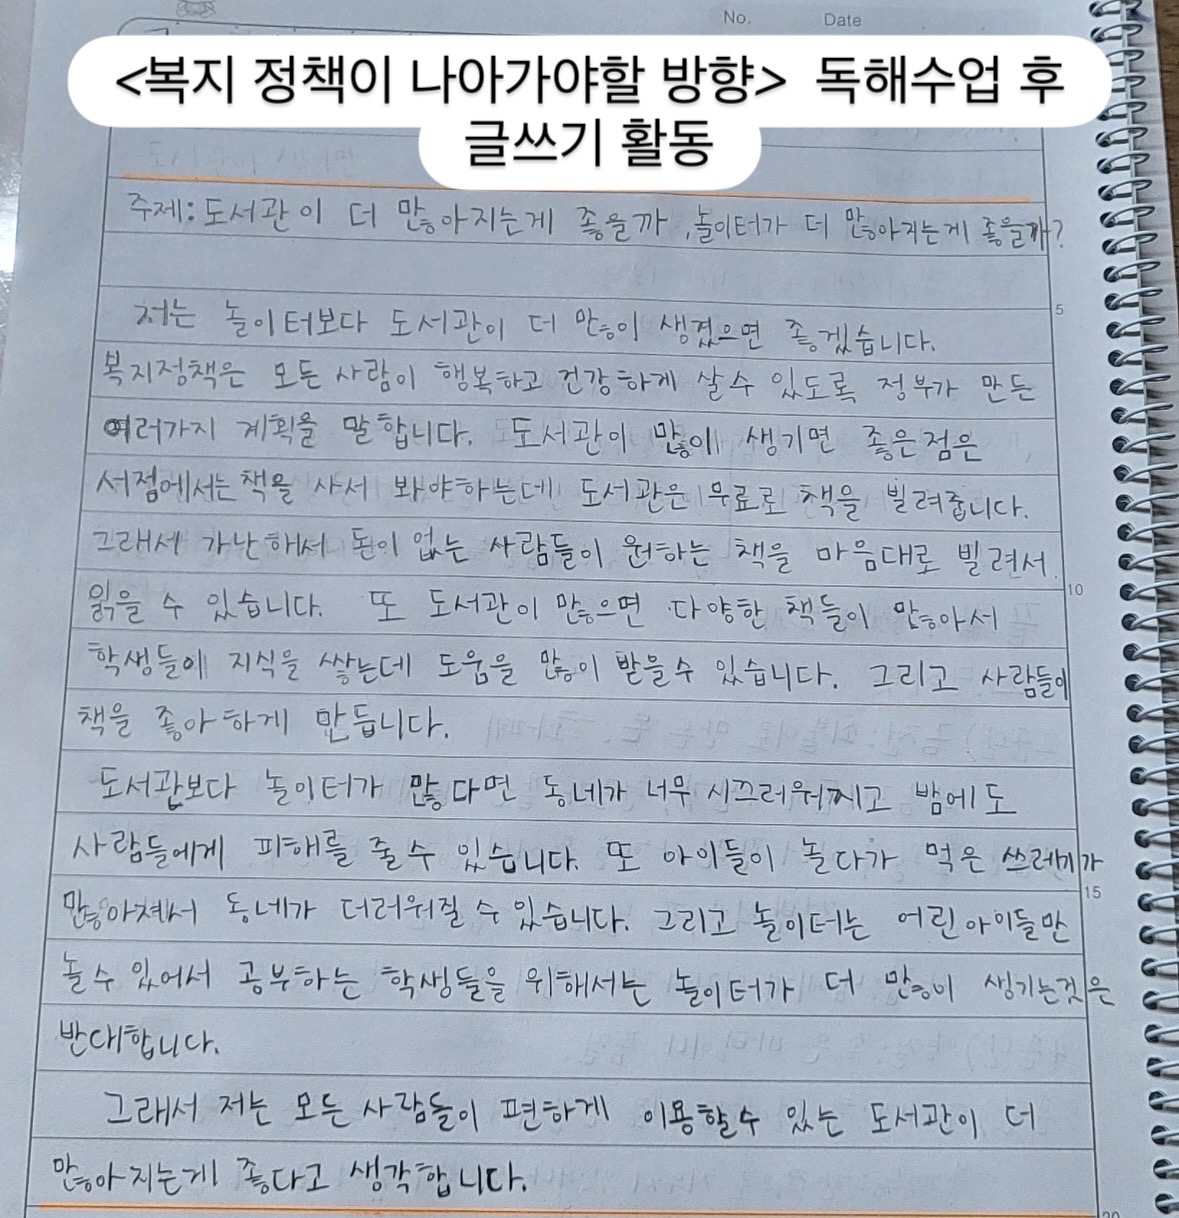 No. Date
<복지 정책이 나아가야할 방향> 독해수업 후
글쓰기 활동
주제: 도서관이 더 많아지는게 좋을까, 놀이터가 더 많아지는게 좋을까?
5
저는 놀이터보다 도서관이 더 많이 생겼으면 좋겠습니다.
복지정책은 모든 사람이 행복하고 건강하게 살수 있도록 정부가 만든
여러가지 계획을 말합니다. 도서관이 많이 생기면 좋은점은
서점에서는 책을 사서 봐야하는데 도서관은 무료로 책을 빌려줍니다.
그래서 가난해서 돈이 없는 사람들이 원하는 책을 마음대로 빌려서
10
읽을 수 있습니다. 또 도서관이 많으면 다양한 책들이 많아서
학생들이 지식을 쌓는데 도움을 많이 받을수 있습니다. 그리고 사람들이
책을 좋아하게 만듭니다.
도서관보다 놀이터가 많다면 동네가 너무 시끄러워지고 밤에도
사람들에게 피해를 줄수 있습니다. 또 아이들이 놀다가 먹은 쓰레기가
15
많아져서 동네가 더러워질 수 있습니다. 그리고 놀이터는 어린아이들만
놀수 있어서 공부하는 학생들을 위해서는 놀이터가 더 많이 생기는것은
반대합니다.
그래서 저는 모든 사람들이 편하게 이용할수 있는 도서관이 더
많아지는게 좋다고 생각합니다.
20